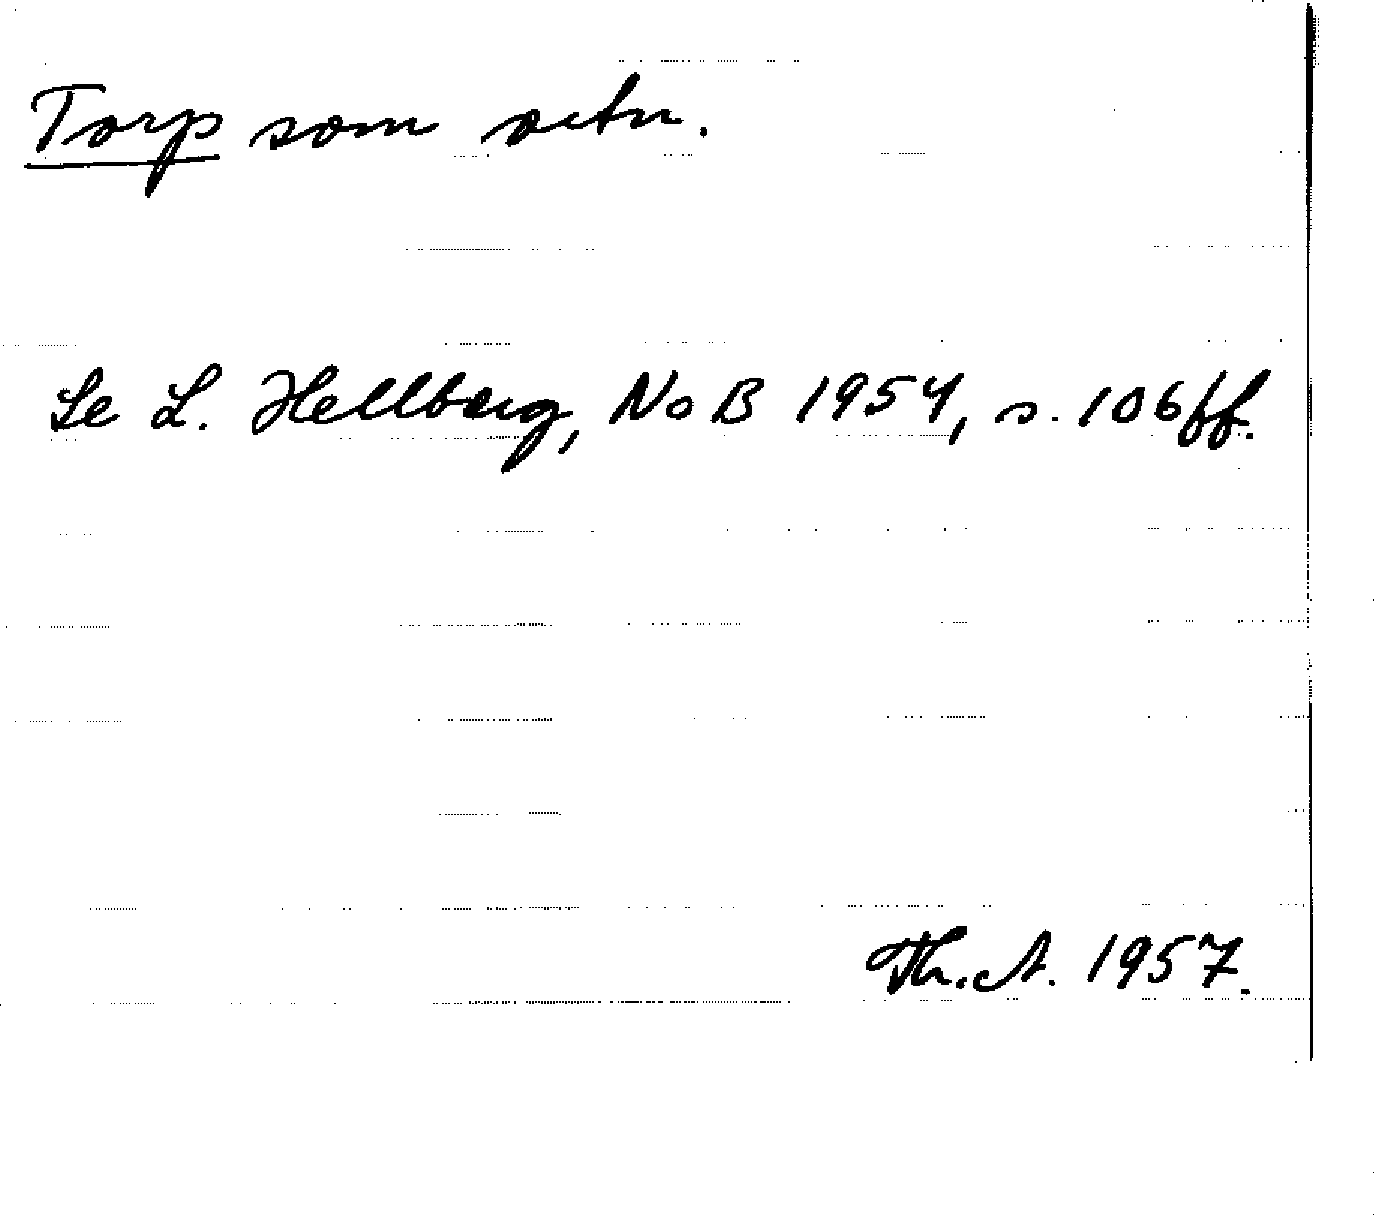 Torp som ortn.
Se L. Hellberg, NoB 1954, s. 106ff.
Th. A. 1957.